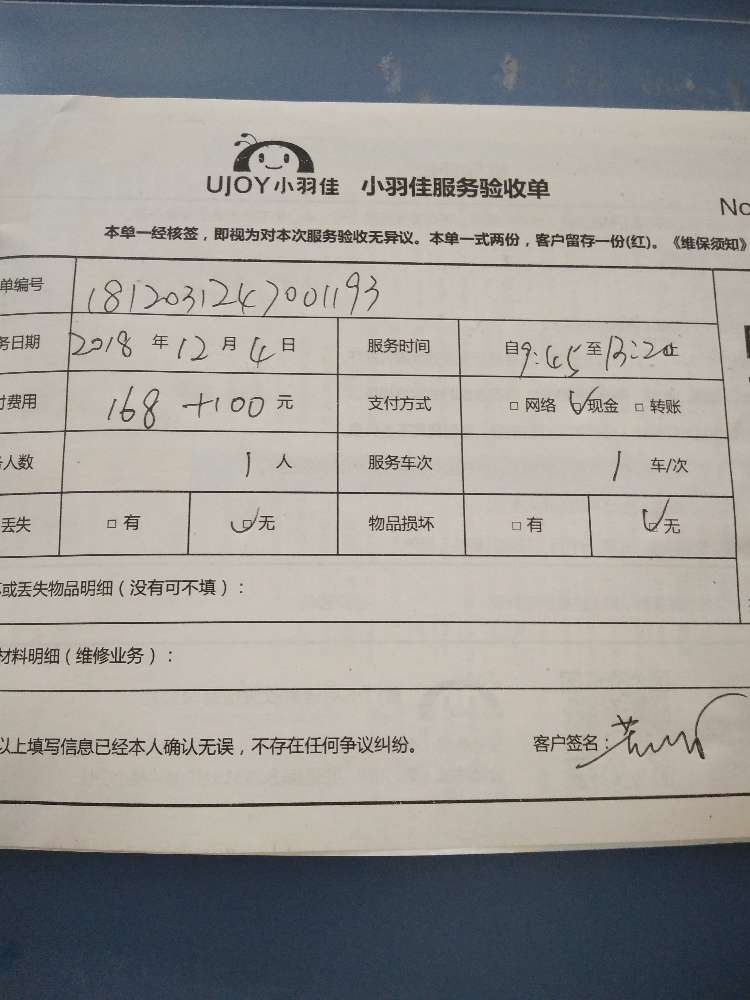 UJOY小羽佳 小羽佳服务验收单
No
本单一经核签，即视为对本次服务验收无异议。本单一式两份，客户留存一份(红)。《维保须知》
单编号 1812031247001193
务日期 2018 年 12 月 4 日 服务时间 自9:45至13:20止
付费用 168 +100 元 支付方式 □ 网络 ☑现金 □ 转账
人数 1 人 服务车次 1 车/次
丢失 □ 有 ☑无 物品损坏 □ 有 ☑无
或丢失物品明细（没有可不填）：
材料明细（维修业务）：
以上填写信息已经本人确认无误，不存在任何争议纠纷。 客户签名：